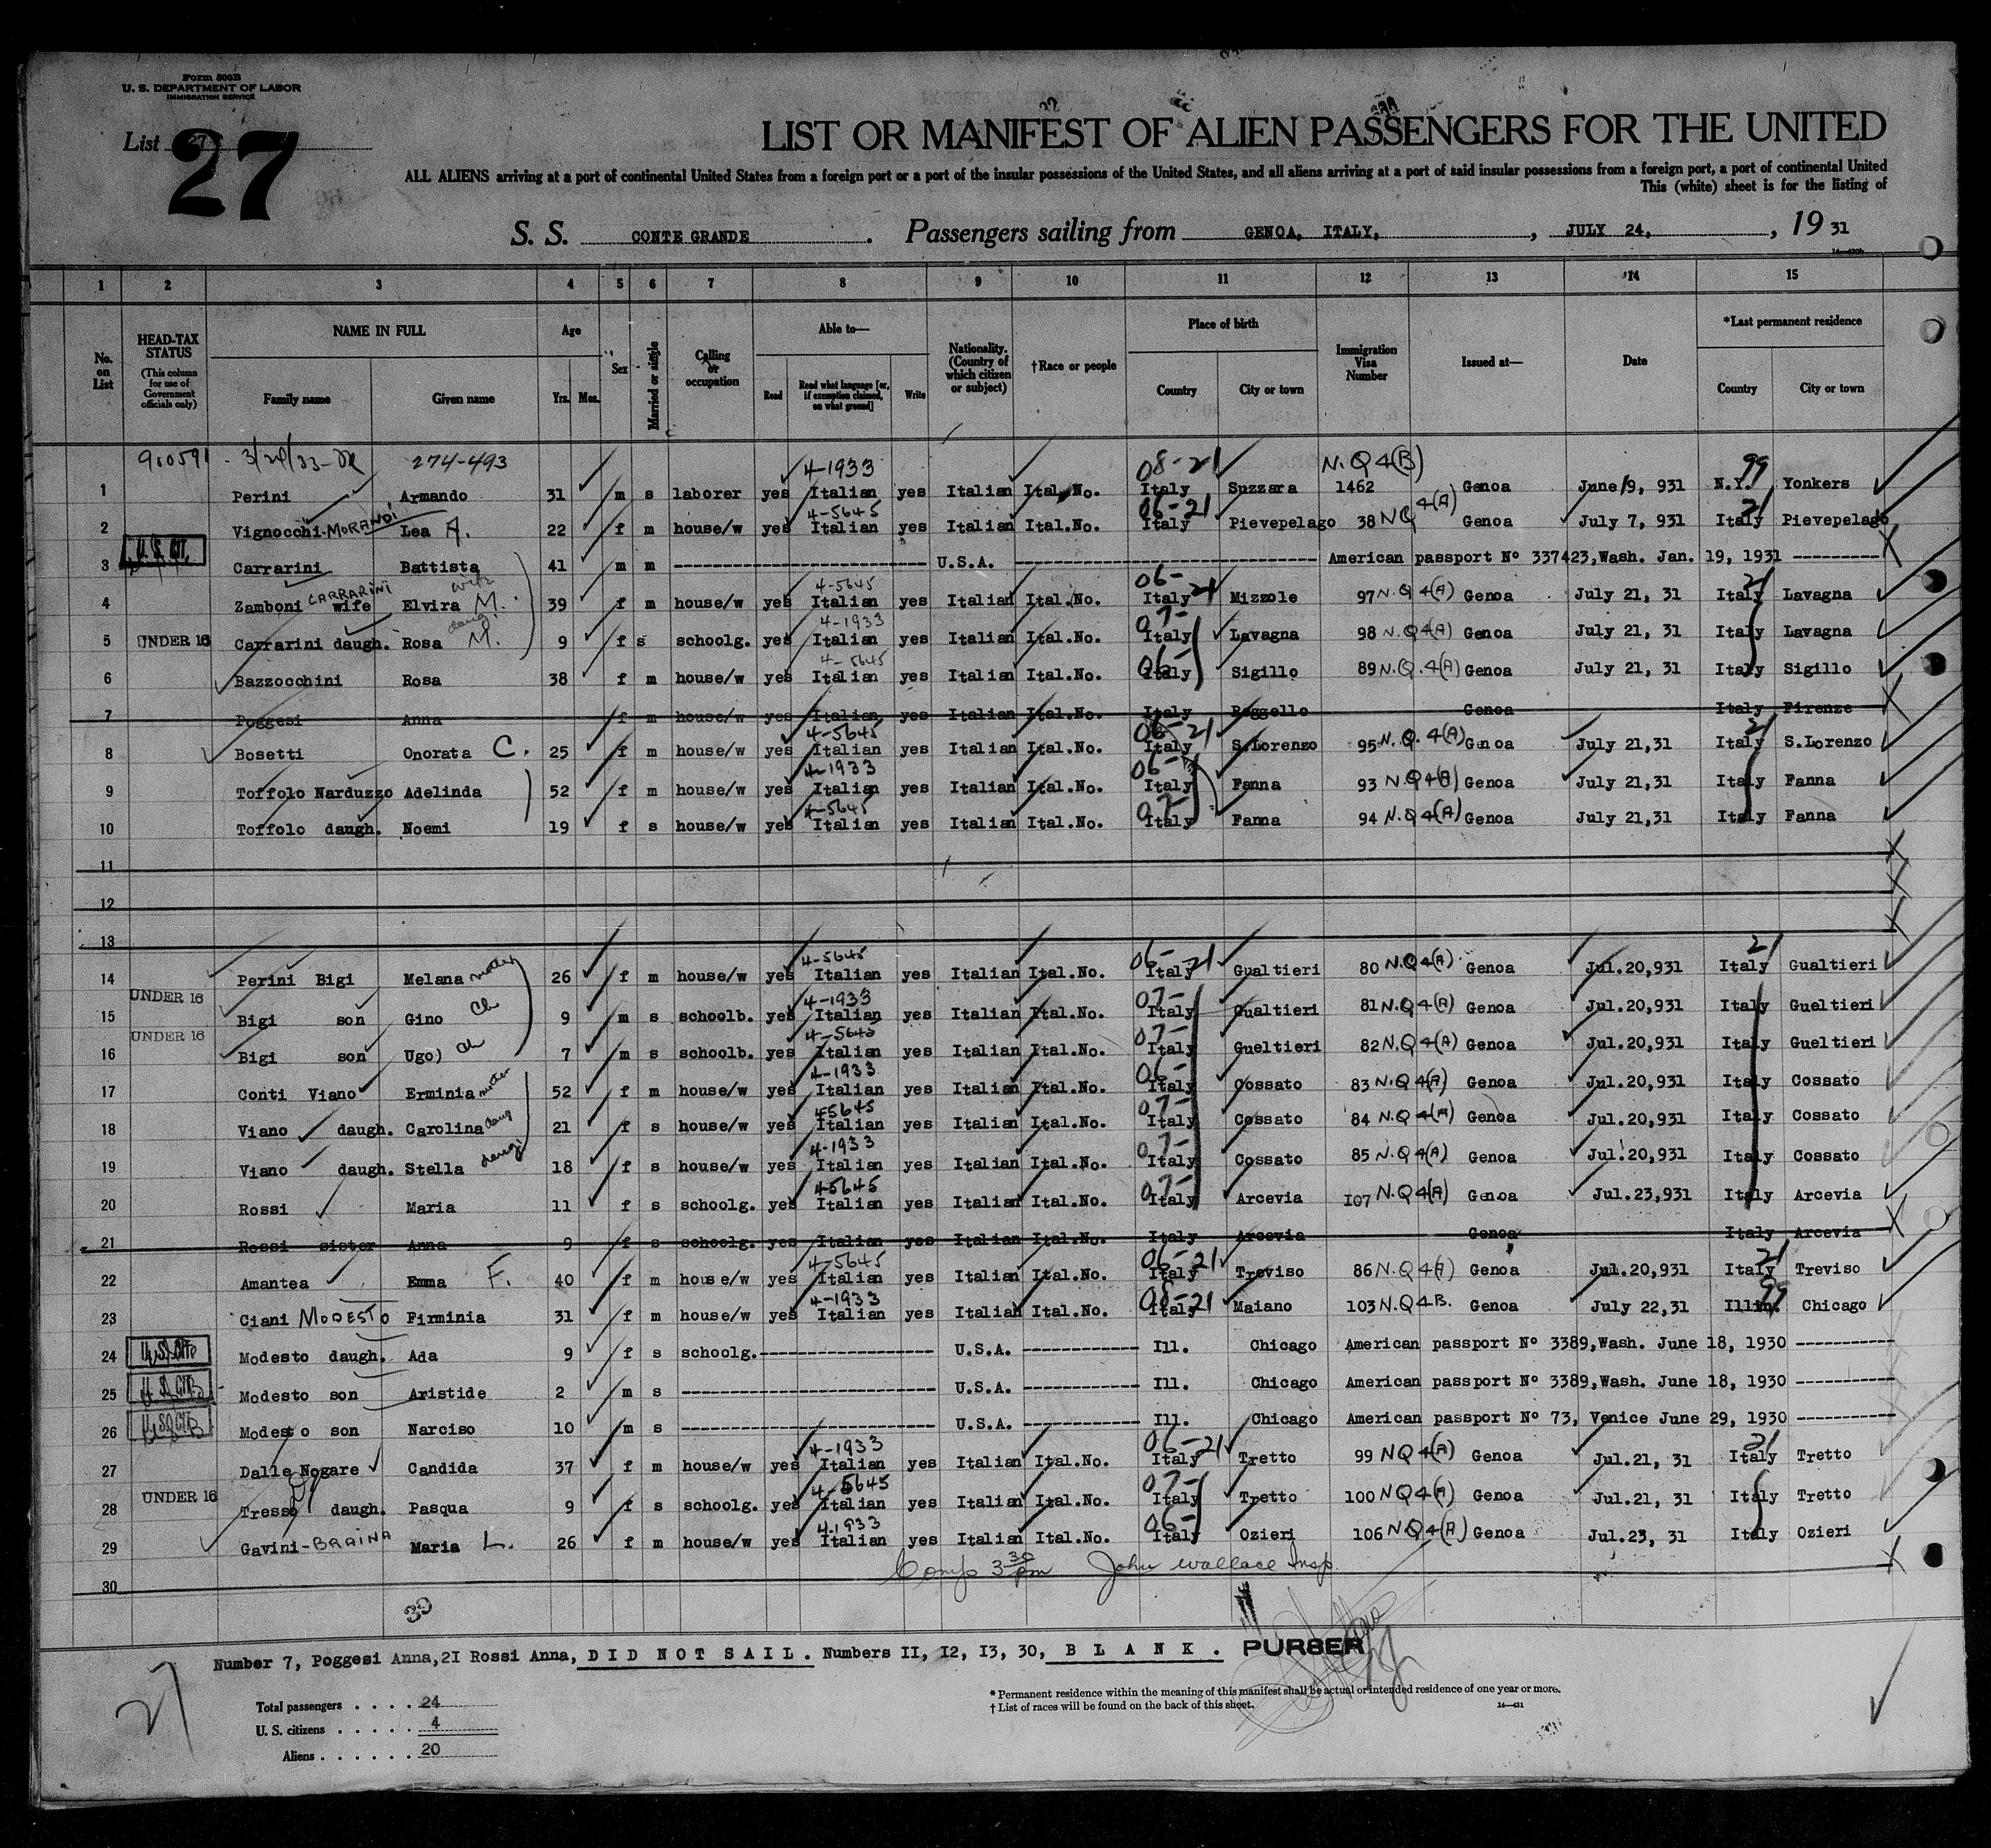 Form 500B
U. S. DEPARTMENT OF LABOR
IMMIGRATION SERVICE
List 27
27
LIST OR MANIFEST OF ALIEN PASSENGERS FOR THE UNITED
ALL ALIENS arriving at a port of continental United States from a foreign port or a port of the insular possessions of the United States, and all aliens arriving at a port of said insular possessions from a foreign port, a port of continental United
This (white) sheet is for the listing of
S. S. CONTE GRANDE . Passengers sailing from GENOA, ITALY, , JULY 24, , 19 31
1 2 3 4 5 6 7 8 9 10 11 12 13 14 15
No. on List
HEAD-TAX STATUS (This column for use of Government officials only)
NAME IN FULL Family name Given name
Age Yrs. Mos.
Sex
Married or single
Calling or occupation
Able to— Read Read what language [or, if exemption claimed, on what ground] Write
Nationality. (Country of which citizen or subject)
†Race or people
Place of birth Country City or town
Immigration Visa Number
Issued at—
Date
*Last permanent residence Country City or town
274-493 4-1933 08-21 N.Q 4(B) 99
1 Perini Armando 31 m s laborer yes Italian yes Italian Ital.No. Italy Suzzara 1462 Genoa June/9, 931 N.Y. Yonkers
4-5645 06-21 4(A) 21
2 Vignocchi-MORANDI Lea A. 22 f m house/w yes Italian yes Italian Ital.No. Italy Pievepelago 38 NQ Genoa July 7, 931 Italy Pievepelago
U.S. CIT.
3 Carrarini Battista 41 m m U.S.A. American passport Nº 337423,Wash. Jan. 19, 1931
CARRARINI wife 4-5645 06-21 21
4 Zamboni wife Elvira M. 39 f m house/w yes Italian yes Italian Ital.No. Italy Mizzole 97 N.Q 4(A) Genoa July 21, 31 Italy Lavagna
daug 4-1933 07-
5 UNDER 16 Carrarini daugh. Rosa M. 9 f s schoolg. yes Italian yes Italian Ital.No. Italy Lavagna 98 N.Q4(A) Genoa July 21, 31 Italy Lavagna
4-5645 06-
6 Bazzocchini Rosa 38 f m house/w yes Italian yes Italian Ital.No. Italy Sigillo 89 N.Q.4(A) Genoa July 21, 31 Italy Sigillo
7 Poggesi Anna f m house/w yes Italian yes Italian Ital.No. Italy Reggello Genoa Italy Firenze
4-5645 06-21 21
8 Bosetti Onorata C. 25 f m house/w yes Italian yes Italian Ital.No. Italy S.Lorenzo 95 N.Q.4(A) Genoa July 21,31 Italy S.Lorenzo
4-1933 06-
9 Toffolo Narduzzo Adelinda 52 f m house/w yes Italian yes Italian Ital.No. Italy Fanna 93 NQ4(A) Genoa July 21,31 Italy Fanna
4-5645 07-
10 Toffolo daugh. Noemi 19 f s house/w yes Italian yes Italian Ital.No. Italy Fanna 94 N.Q4(A) Genoa July 21,31 Italy Fanna
11
12
13
4-5645 06-21 21
14 Perini Bigi Melana mother 26 f m house/w yes Italian yes Italian Ital.No. Italy Gualtieri 80 N.Q4(A) Genoa Jul.20,931 Italy Gualtieri
UNDER 16 4-1933 07-
15 Bigi son Gino Ch 9 m s schoolb. yes Italian yes Italian Ital.No. Italy Gualtieri 81 N.Q4(A) Genoa Jul.20,931 Italy Gueltieri
UNDER 16 4-5645 07-
16 Bigi son Ugo) Ch 7 m s schoolb. yes Italian yes Italian Ital.No. Italy Gueltieri 82 N.Q4(A) Genoa Jul.20,931 Italy Gueltieri
4-1933 06-
17 Conti Viano Erminia mother 52 f m house/w yes Italian yes Italian Ital.No. Italy Cossato 83 N.Q4(A) Genoa Jul.20,931 Italy Cossato
45645 07-
18 Viano daugh. Carolina daug 21 f s house/w yes Italian yes Italian Ital.No. Italy Cossato 84 N.Q4(A) Genoa Jul.20,931 Italy Cossato
4-1933 07-
19 Viano daugh. Stella daug 18 f s house/w yes Italian yes Italian Ital.No. Italy Cossato 85 N.Q4(A) Genoa Jul.20,931 Italy Cossato
45645 07-
20 Rossi Maria 11 f s schoolg. yes Italian yes Italian Ital.No. Italy Arcevia I07 N.Q4(A) Genoa Jul.23,931 Italy Arcevia
21 Rossi sister Anna 9 f s schoolg. yes Italian yes Italian Ital.No. Italy Arcevia Genoa Italy Arcevia
4-5645 06-21 21
22 Amantea Emma F. 40 f m house/w yes Italian yes Italian Ital.No. Italy Treviso 86 N.Q4(A) Genoa Jul.20,931 Italy Treviso
4-1933 08-21 99
23 Ciani MODESTO Firminia 31 f m house/w yes Italian yes Italian Ital.No. Italy Maiano 103 N.Q4B. Genoa July 22,31 Illin. Chicago
24 Modesto daugh. Ada 9 f s schoolg. U.S.A. Ill. Chicago American passport Nº 3389,Wash. June 18, 1930
25 Modesto son Aristide 2 m s U.S.A. Ill. Chicago American passport Nº 3389,Wash. June 18, 1930
26 Modesto son Narciso 10 m s U.S.A. Ill. Chicago American passport Nº 73, Venice June 29, 1930
4-1933 06-21 21
27 Dalle Nogare Candida 37 f m house/w yes Italian yes Italian Ital.No. Italy Tretto 99 NQ4(A) Genoa Jul.21, 31 Italy Tretto
UNDER 16 4-5645 07-
28 Tresso daugh. Pasqua 9 f s schoolg. yes Italian yes Italian Ital.No. Italy Tretto 100 NQ4(A) Genoa Jul.21, 31 Italy Tretto
4-1933 06-
29 Gavini-BRAINA Maria L. 26 f m house/w yes Italian yes Italian Ital.No. Italy Ozieri 106 N.Q4(A) Genoa Jul.23, 31 Italy Ozieri
Comp 3 30 pm John Wallace Insp.
30
Number 7, Poggesi Anna,2I Rossi Anna, DID NOT SAIL. Numbers II, I2, I3, 30, BLANK. PURSER
Total passengers . . . . 24
U. S. citizens . . . . . 4
Aliens . . . . . . 20
* Permanent residence within the meaning of this manifest shall be actual or intended residence of one year or more.
† List of races will be found on the back of this sheet.